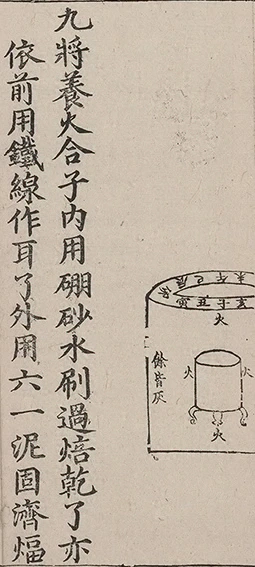 九將養火合子内用硼砂水刷過焙乾了亦
依前用鐵線作耳了外用六一泥固濟煏
火
火
火
火
餘皆灰